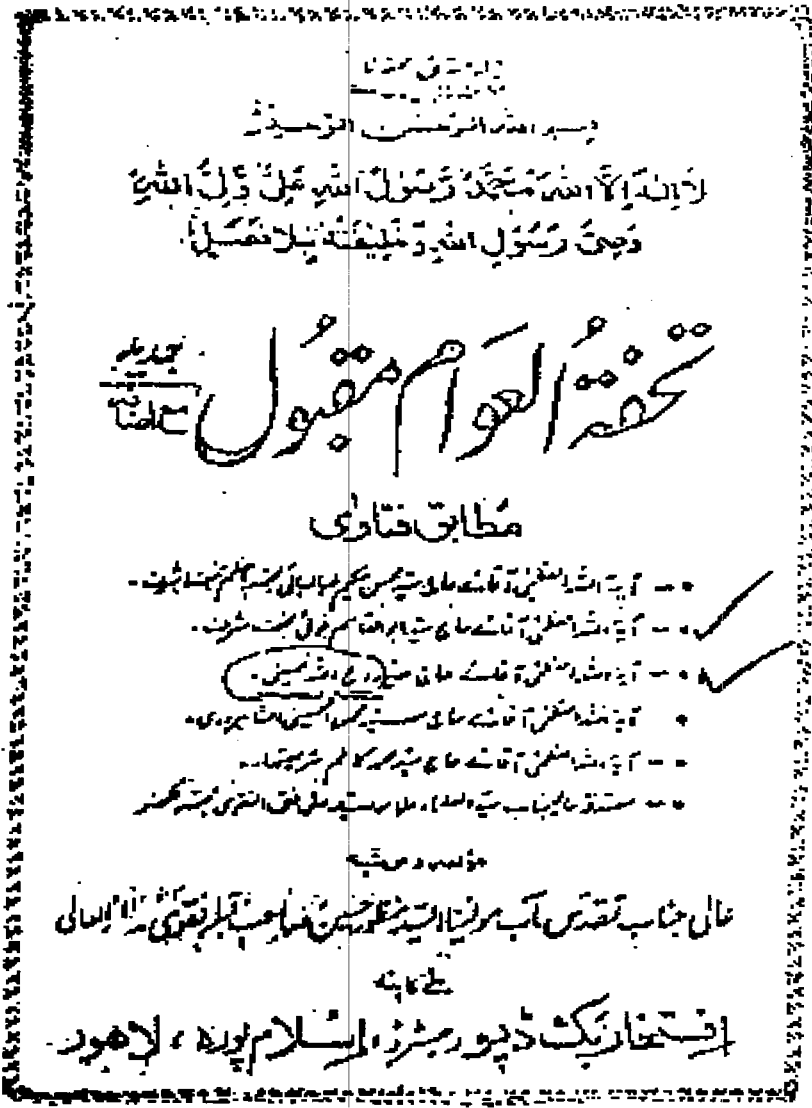 بسم الله الرحمن الرحيم
لَا إِلٰهَ إِلَّا اللهُ مُحَمَّدٌ رَّسُوْلُ اللهِ عَلِيٌّ وَّلِيُّ اللهِ
وَصِيُّ رَسُوْلِ اللهِ وَ خَلِيْفَتُهٗ بِلَا فَصْلٍ
تحفۃُ العوَام مقبُول جدید
مع اضافہ
مُطابق فتاوٰی
آیۃ اللہ العظمیٰ آقائے حاج سید محسن حکیم طباطبائی مجتہد اعظم نجف اشرف۔
آیۃ اللہ العظمیٰ آقائے حاج سید ابوالقاسم خوئی نجف اشرف۔
آیۃ اللہ العظمیٰ آقائے حاج سید روح اللہ خمینی۔
آیۃ اللہ العظمیٰ آقائے حاج سید محمود الحسینی الشاہرودی۔
آیۃ اللہ العظمیٰ آقائے حاج سید محمد کاظم شریعتمدار۔
سید العلماء علامہ سید علی نقی النقوی مجتہد لکھنؤ
مؤلفہ و مرتبہ
عالی جناب تقدس مآب مولینا السید منظور حسین صاحب قبلہ نقوی مد ظلہ العالی
ملنے کا پتہ
افتخار بک ڈپو رجسٹرڈ، اسلام پورہ، لاھور